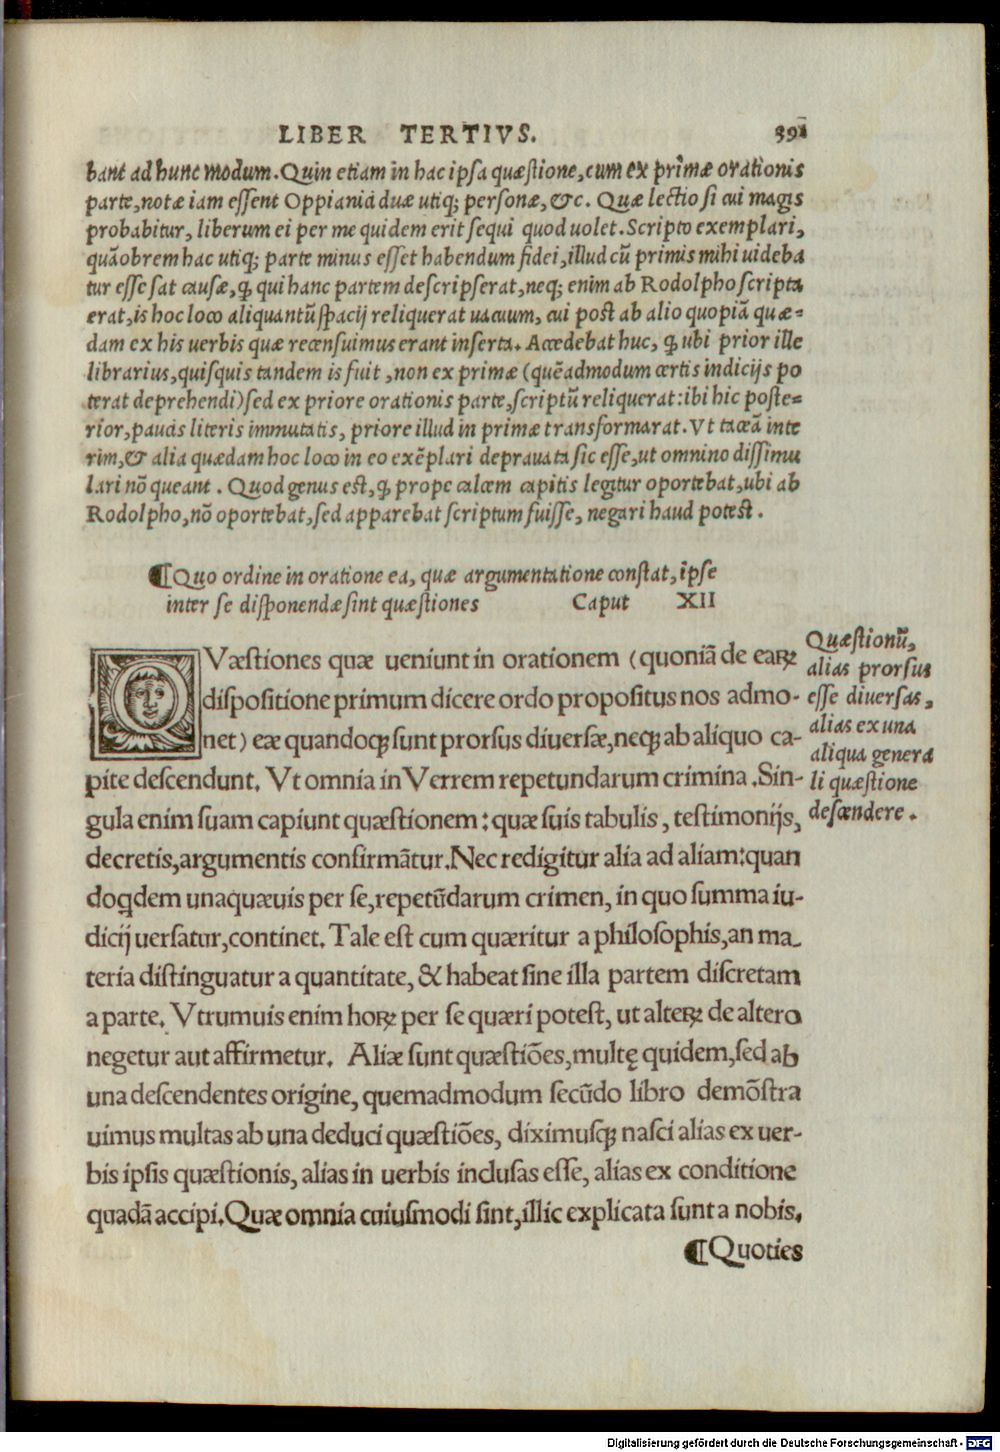 LIBER TERTIVS. 391
bant ad hunc modum. Quin etiam in hac ipsa quæstione, cum ex primæ orationis
parte, notæ iam essent Oppianici duæ utiq; personæ, &c. Quæ lectio si cui magis
probabitur, liberum ei per me quidem erit sequi quod uolet. Scripto exemplari,
quāobrem hac utiq; parte minus esset habendum fidei, illud cū primis mihi uideba
tur esse sat causæ, ꝙ qui hanc partem descripserat, neq; enim ab Rodolpho scripta
erat, is hoc loco aliquantū spacij reliquerat uacuum, cui post ab alio quopiā quæ=
dam ex his uerbis quæ recensuimus erant inserta. Accedebat huc, ꝙ ubi prior ille
librarius, quisquis tandem is fuit, non ex primæ (quēadmodum certis indicijs po
terat deprehendi) sed ex priore orationis parte, scriptū reliquerat: ibi hic poste=
rior, paucis literis immutatis, priore illud in primæ transformarat. Vt taceā inte
rim, & alia quædam hoc loco in eo exēplari deprauata sic esse, ut omnino dissimu
lari nō queant. Quod genus est, ꝙ prope calcem capitis legitur oportebat, ubi ab
Rodolpho, nō oportebat, sed apparebat scriptum fuisse, negari haud potest.
¶Quo ordine in oratione ea, quæ argumentatione constat, ipse
inter se disponendæ sint quæstiones Caput XII
QVæstiones quæ ueniunt in orationem (quoniā de eaꝝ
dispositione primum dicere ordo propositus nos admo-
net) eæ quandoq; sunt prorsus diuersæ, neq; ab aliquo ca-
pite descendunt. Vt omnia in Verrem repetundarum crimina. Sin-
gula enim suam capiunt quæstionem: quæ suis tabulis, testimonijs,
decretis, argumentis confirmātur. Nec redigitur alia ad aliam: quan
doqdem unaquæuis per se, repetūdarum crimen, in quo summa iu-
dicij uersatur, continet. Tale est cum quæritur a philosophis, an ma-
teria distinguatur a quantitate, & habeat sine illa partem discretam
a parte. Vtrumuis enim hoꝝ per se quæri potest, ut alteꝝ de altero
negetur aut affirmetur. Aliæ sunt quæstiōes, multę quidem, sed ab
una descendentes origine, quemadmodum secūdo libro demōstra
uimus multas ab una deduci quæstiōes, diximusq; nasci alias ex uer-
bis ipsis quæstionis, alias in uerbis inclusas esse, alias ex conditione
quadā accipi. Quæ omnia cuiusmodi sint, illic explicata sunt a nobis.
¶Quoties
Quæstionū,
alias prorsus
esse diuersas,
alias ex una
aliqua genera
li quæstione
descendere.
Digitalisierung gefördert durch die Deutsche Forschungsgemeinschaft - DFG